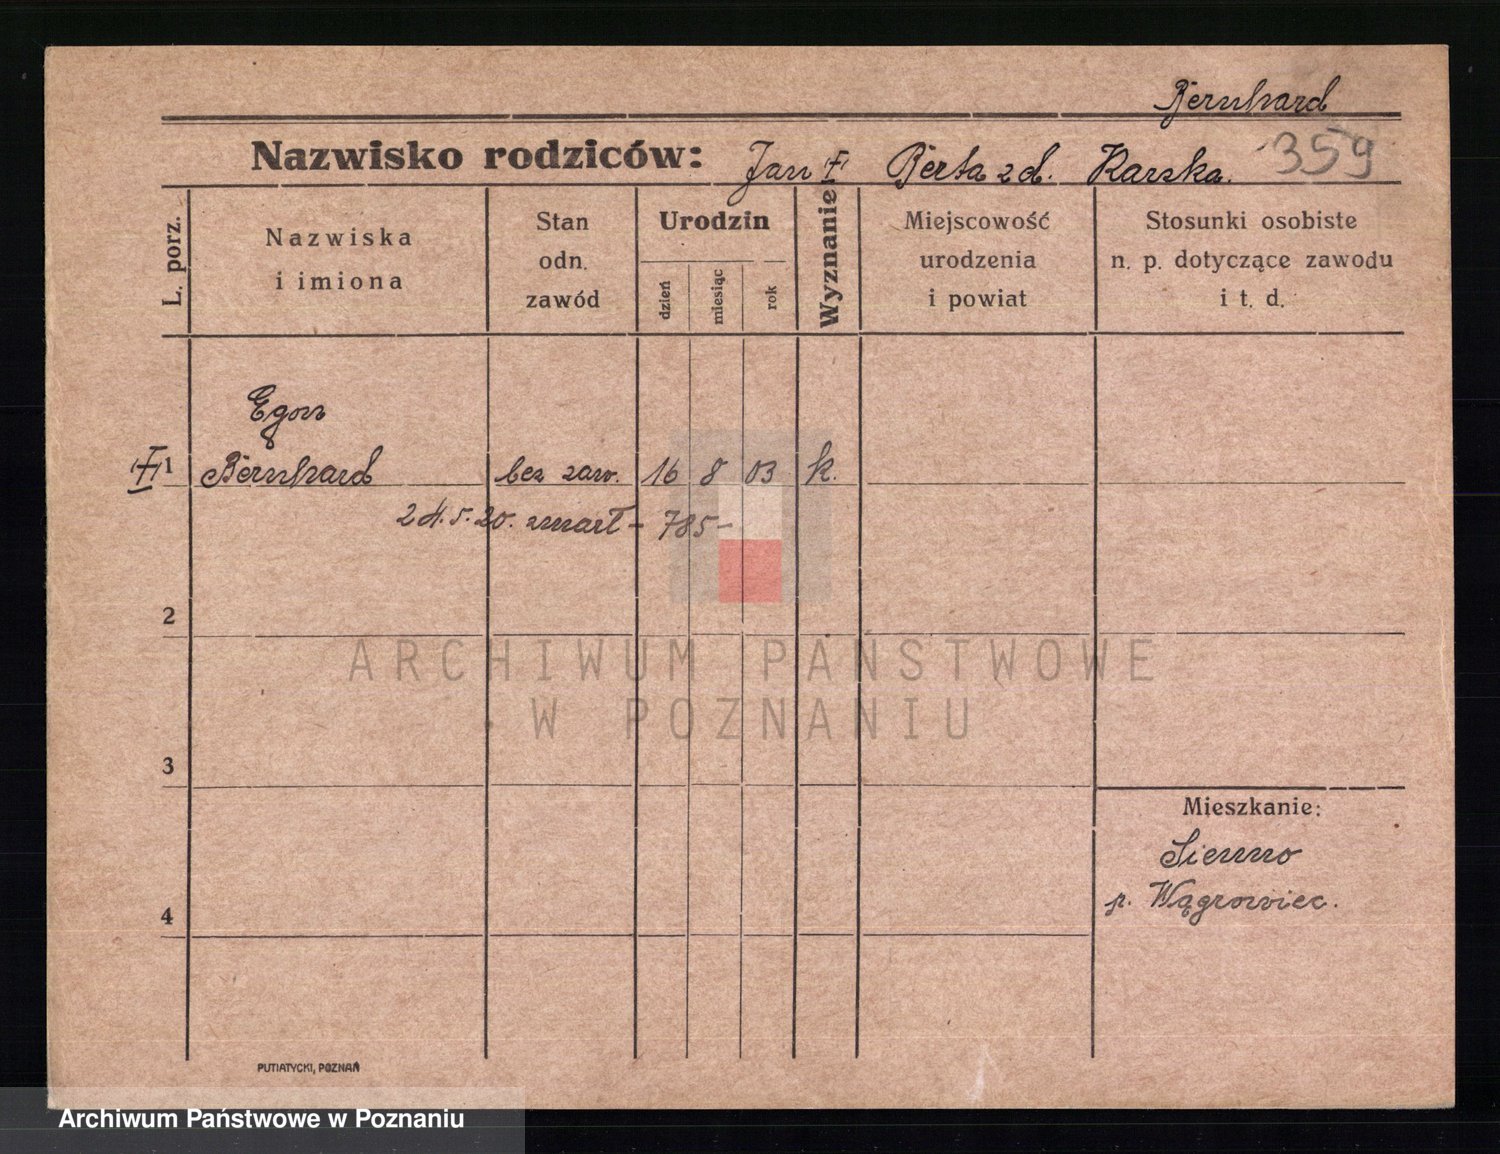 Bernhard
Nazwisko rodziców: Jan Berta zd. Karska. 359
L. porz.
Nazwiska
i imiona
Stan
odn.
zawód
Urodzin
dzień
miesiąc
rok
Wyznanie
Miejscowość
urodzenia
i powiat
Stosunki osobiste
n. p. dotyczące zawodu
i t. d.
Egon
1 Bernhard bez zaw. 16 8 03 k.
24.5.20. zmarł - 785 -
2
ARCHIWUM PAŃSTWOWE
W POZNANIU
3
Mieszkanie:
Sienno
p. Wągrowiec.
4
PUTIATYCKI, POZNAŃ
Archiwum Państwowe w Poznaniu